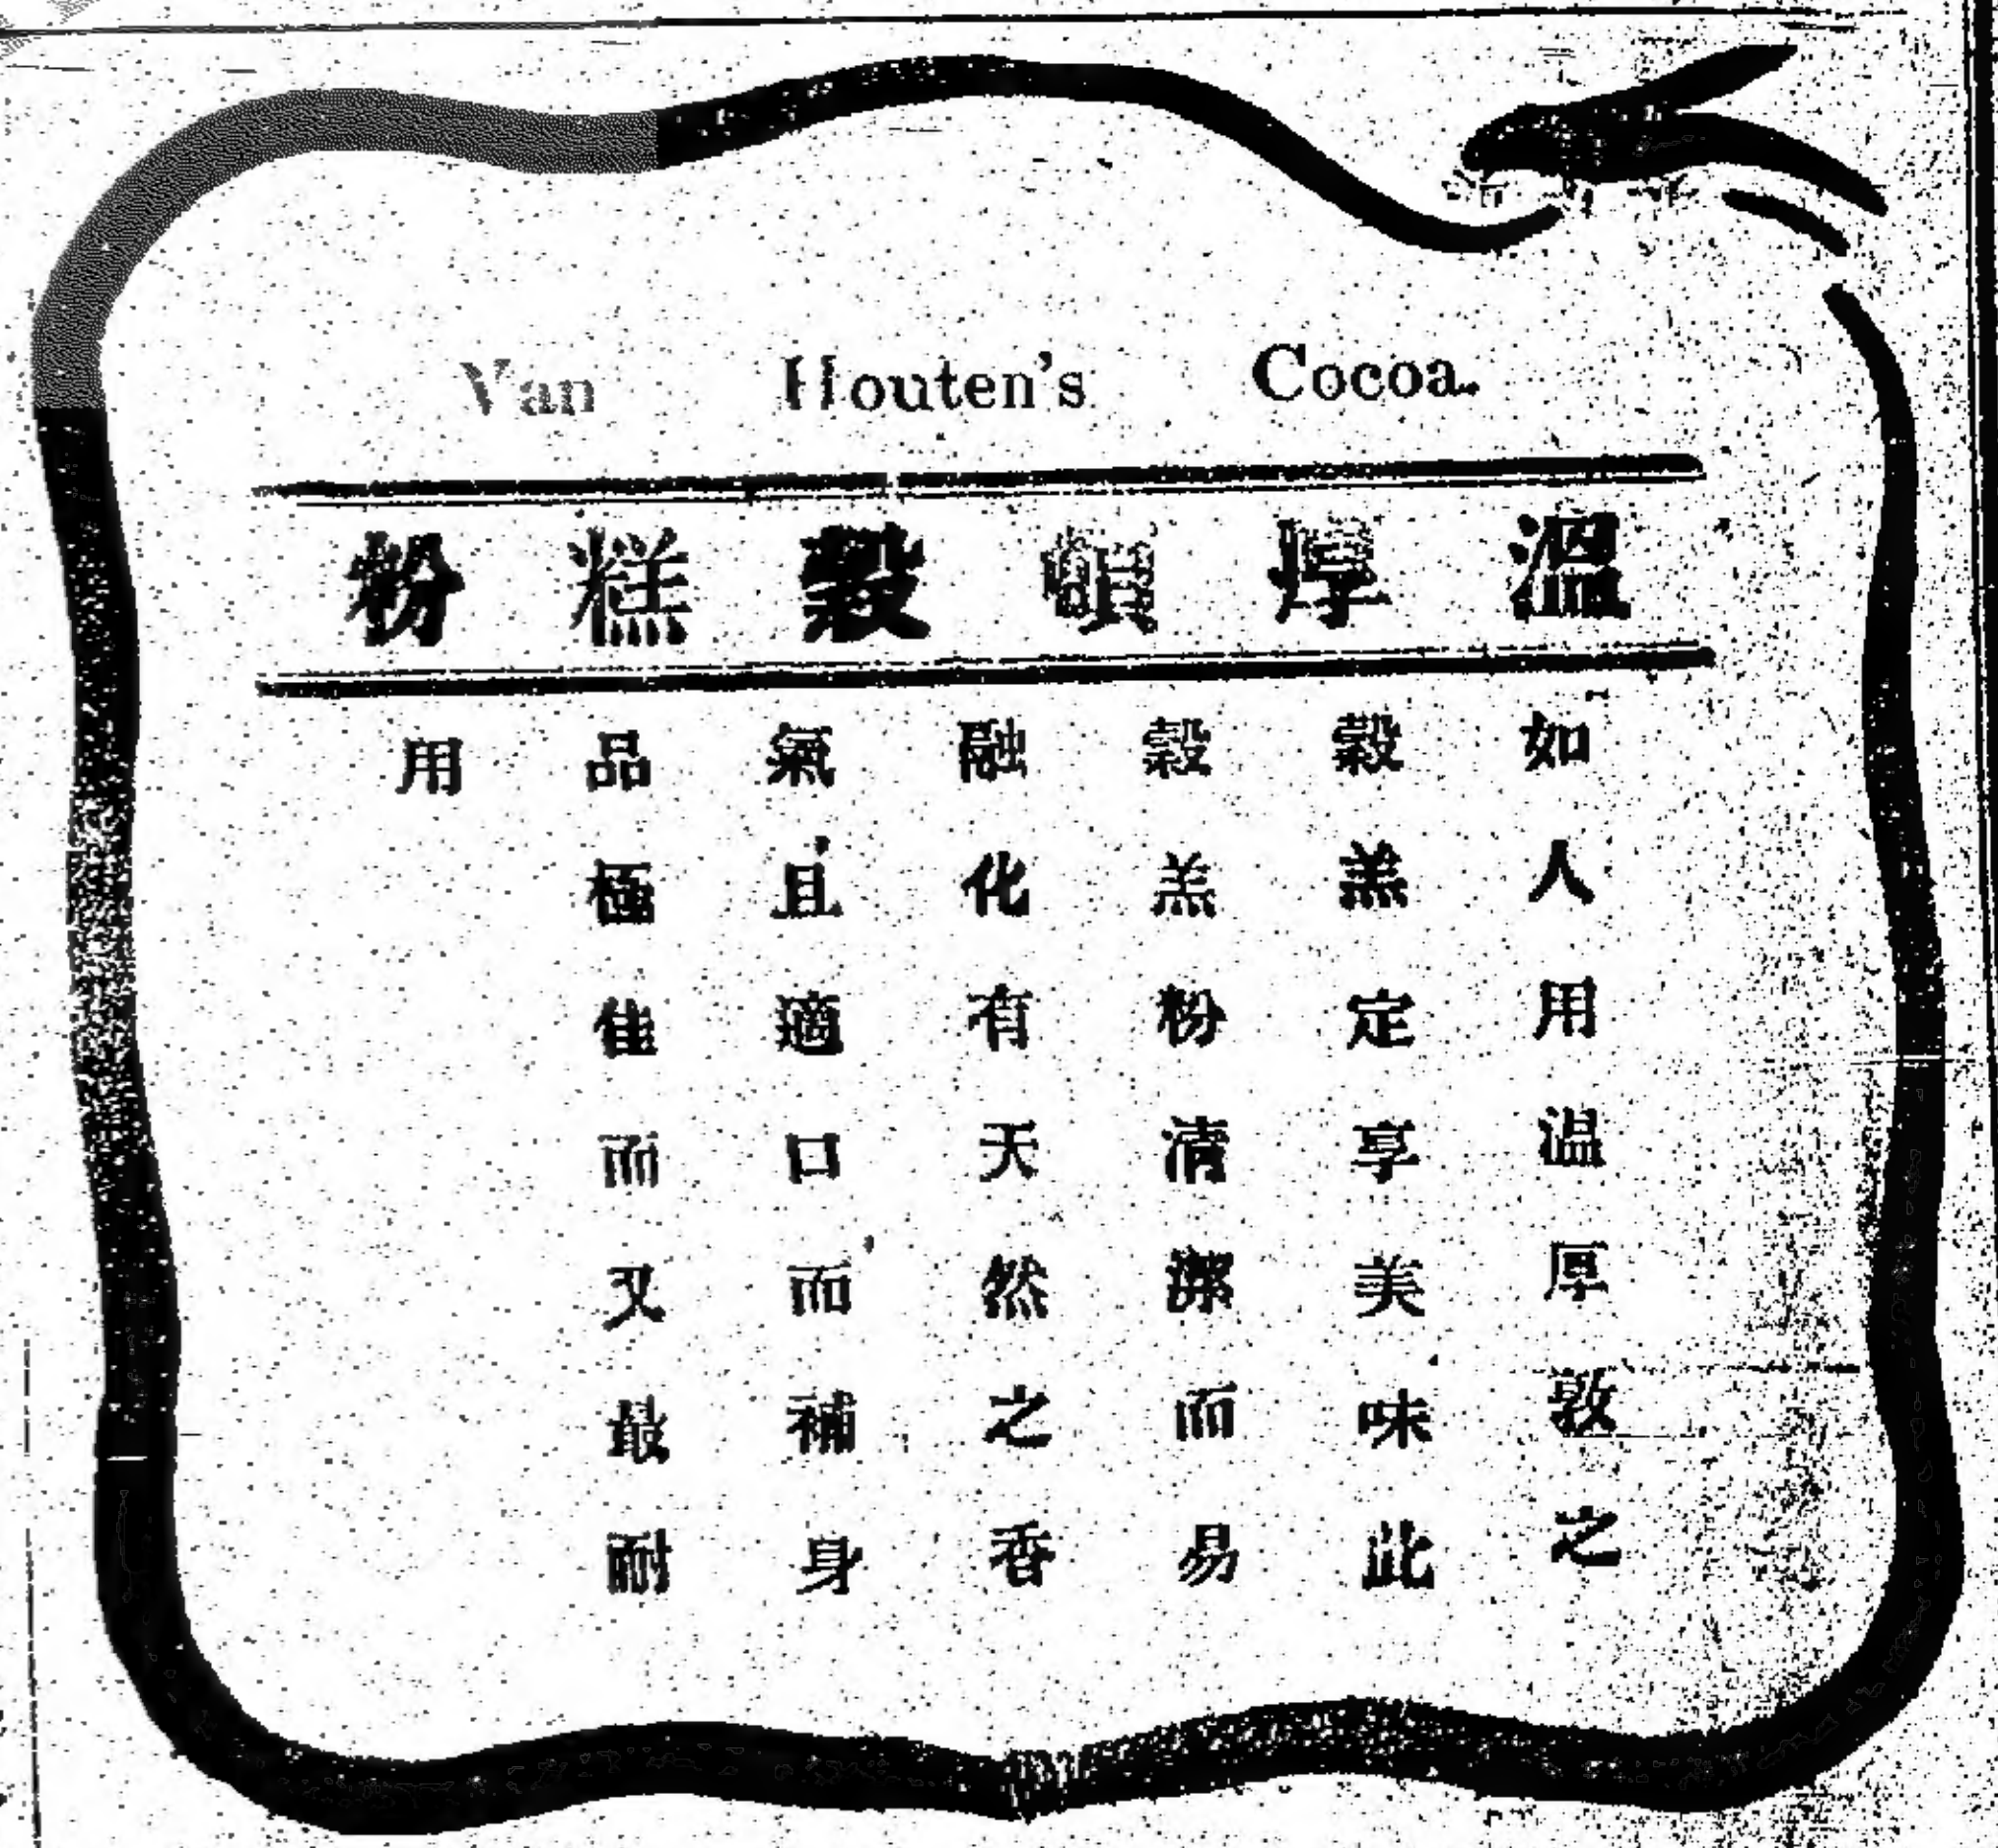 Van Houten's Cocoa.
溫厚頓穀糕粉
如人用温厚敦之
穀羔定享美味此
穀羔粉清潔而易
融化有天然之香
氣且適口而補身
品極佳而又最耐
用